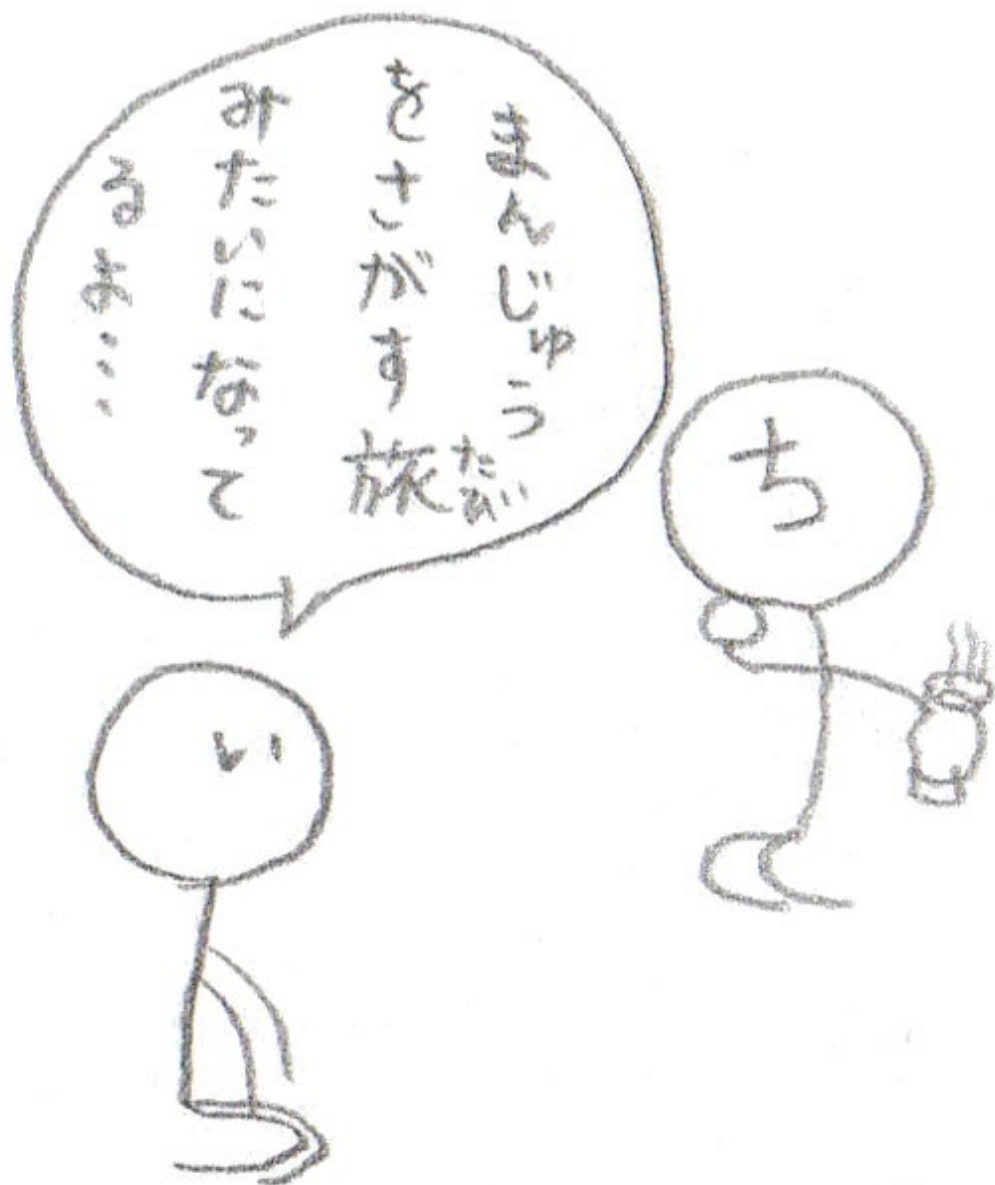 まんじゅう
をさがす旅
たび
みたいになって
るよ…
ち
い